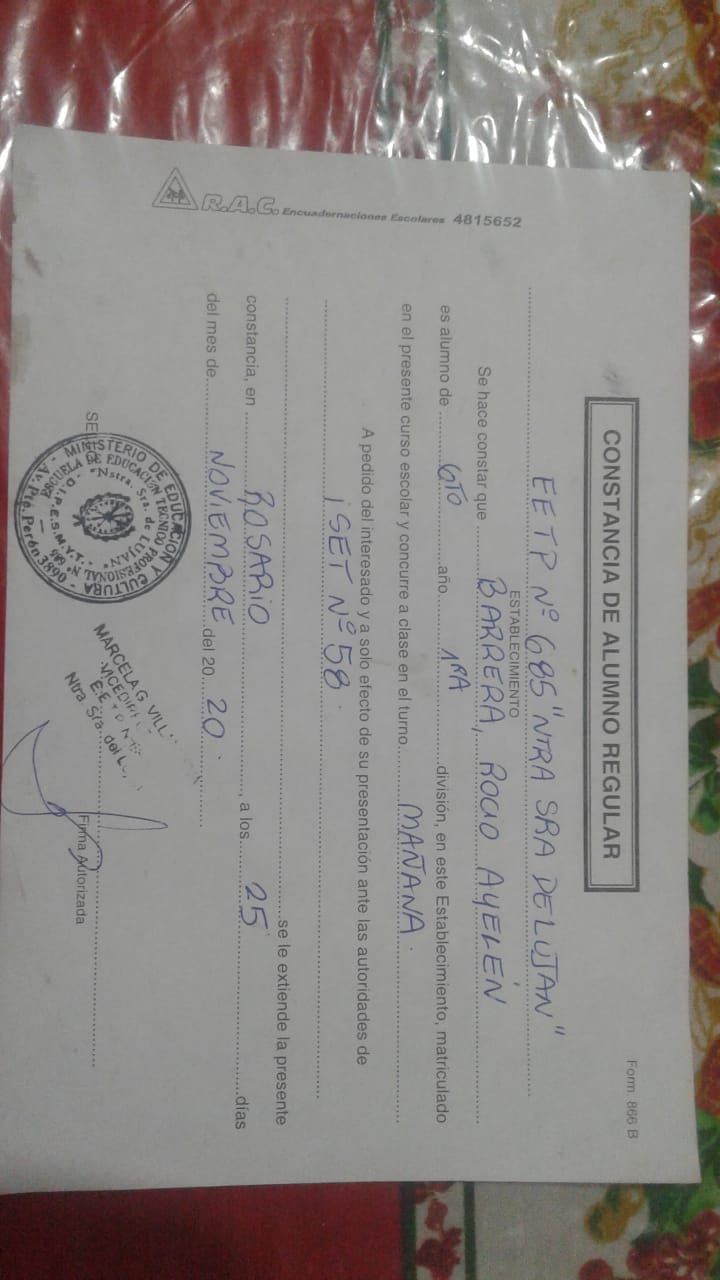 Form. 866 B
CONSTANCIA DE ALUMNO REGULAR
EETP Nº 685 "NTRA SRA DE LUJAN"
ESTABLECIMIENTO
Se hace constar que BARRERA, ROCIO AYELÉN
es alumno de 6TO año 1RA división, en este Establecimiento, matriculado
en el presente curso escolar y concurre a clase en el turno MAÑANA.
A pedido del interesado y a solo efecto de su presentación ante las autoridades de
iSET Nº 58.
se le extiende la presente
constancia, en ROSARIO, a los 25 días
del mes de NOVIEMBRE del 20 20.
MINISTERIO DE EDUCACION Y CULTURA
ESCUELA DE EDUCACION TECNICO PROFESIONAL Nº 685
"Nstra. Sra. de LUJAN"
D.I.P.E.S.M.Y.T.
Av. Pte. Perón 3890
MARCELA G. VILL
Ntra Sra. del
Firma Autorizada
R.A.C. Encuadernaciones Escolares 4815652